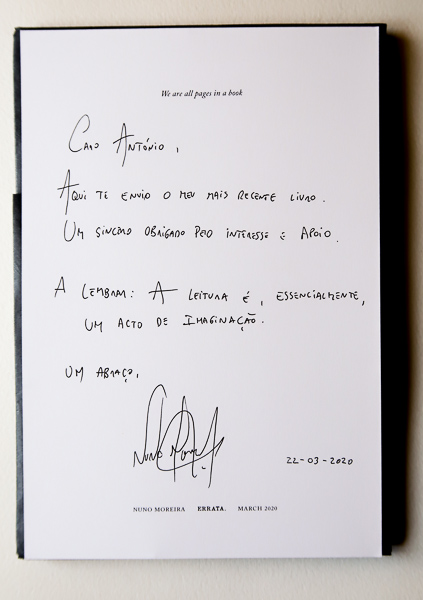 We are all pages in a book
CARO ANTÓNIO,
AQUI TE ENVIO O MEU MAIS RECENTE LIVRO.
UM SINCERO OBRIGADO PELO INTERESSE E APOIO.
A LEMBRAR: A LEITURA É, ESSENCIALMENTE,
UM ACTO DE IMAGINAÇÃO.
UM ABRAÇO,
22-03-2020
NUNO MOREIRA ERRATA. MARCH 2020